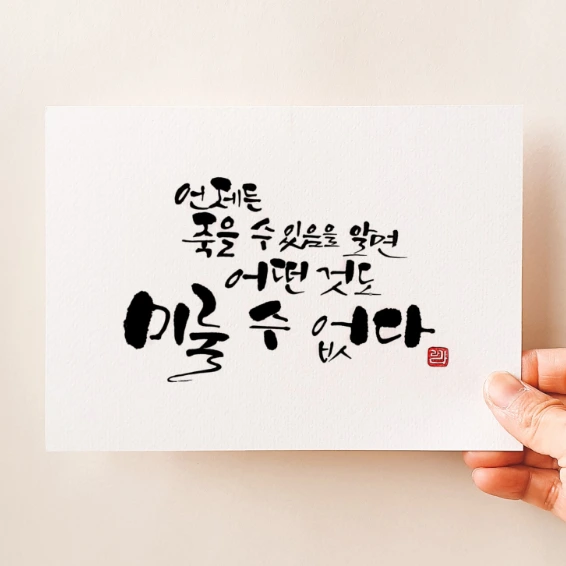 언제든
죽을 수 있음을 알면
어떤 것도
미룰 수 없다